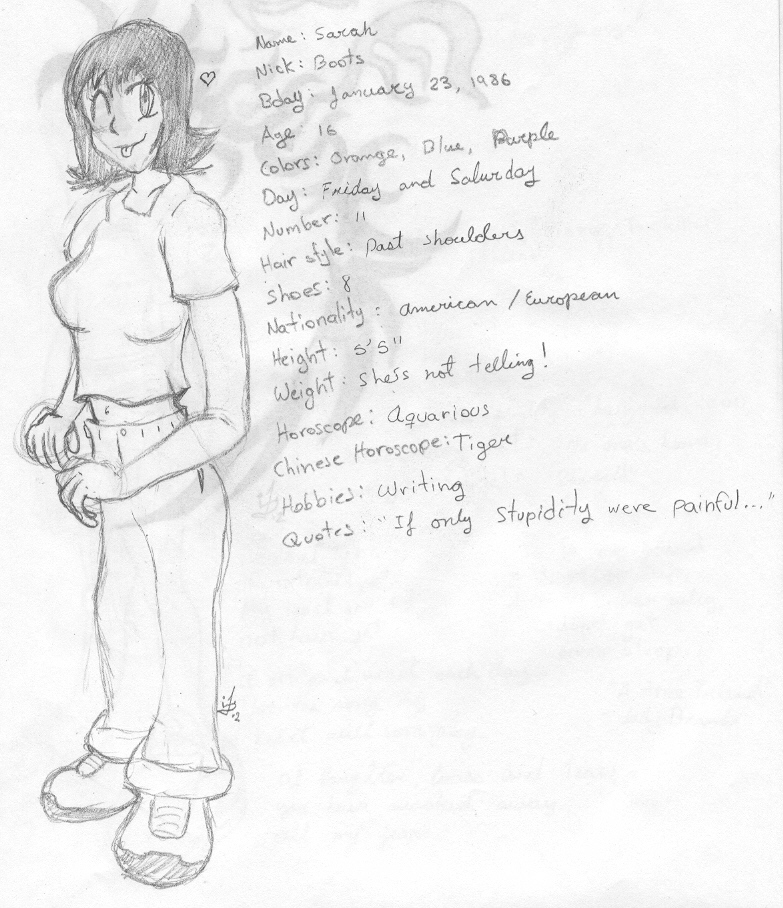 Name: Sarah
Nick: Boots
Bday: January 23, 1986
Age: 16
Colors: Orange, Blue, Purple
Day: Friday and Saturday
Number: 11
Hair style: Past shoulders
Shoes: 8
Nationality: american / European
Height: 5'5"
Weight: She's not telling!
Horoscope: Aquarious
Chinese Horoscope: Tiger
Hobbies: Writing
Quotes: "If only stupidity were painful..."